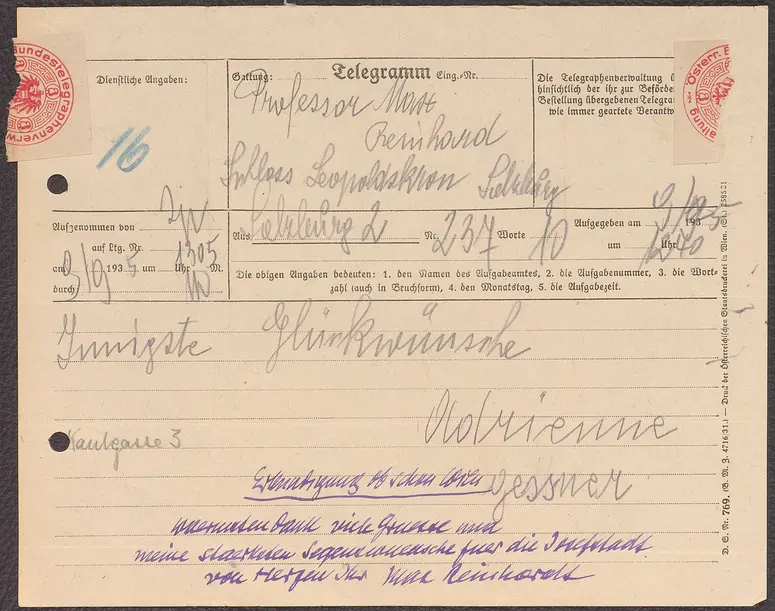 Bundestelegraphenverw
Österr. B
altung
Dienstliche Angaben:
16
Gattung: Telegramm Eing.-Nr.
Professor Max
Reinhard
Schloss Leopoldskron Salzburg
Die Telegraphenverwaltung ü
hinsichtlich der ihr zur Beförde
Bestellung übergebenen Telegra
wie immer geartete Verantw
Aufgenommen von
auf Ltg. Nr.
an 9/9 1935 um 1305 Uhr M.
durch
Aus Salzburg 2 Nr. 237 Worte 10 Aufgegeben am 9/9 1935
um 1240 Uhr
Die obigen Angaben bedeuten: 1. den Namen des Aufgabeamtes, 2. die Aufgabenummer, 3. die Wort-
zahl (auch in Bruchform), 4. den Monatstag, 5. die Aufgabezeit.
Innigste Glückwünsche
Adrienne
Kaulgasse 3
Gessner
Erkundigung ob schon Wien
waermsten Dank viele Gruesse und
meine staerksten Segenswuensche fuer die Josefstadt
von Herzen Ihr Max Reinhardt
D. S. Nr. 769. (G. M. Z. 4716/31.) — Druck der Österreichischen Staatsdruckerei in Wien. (St.) 258531